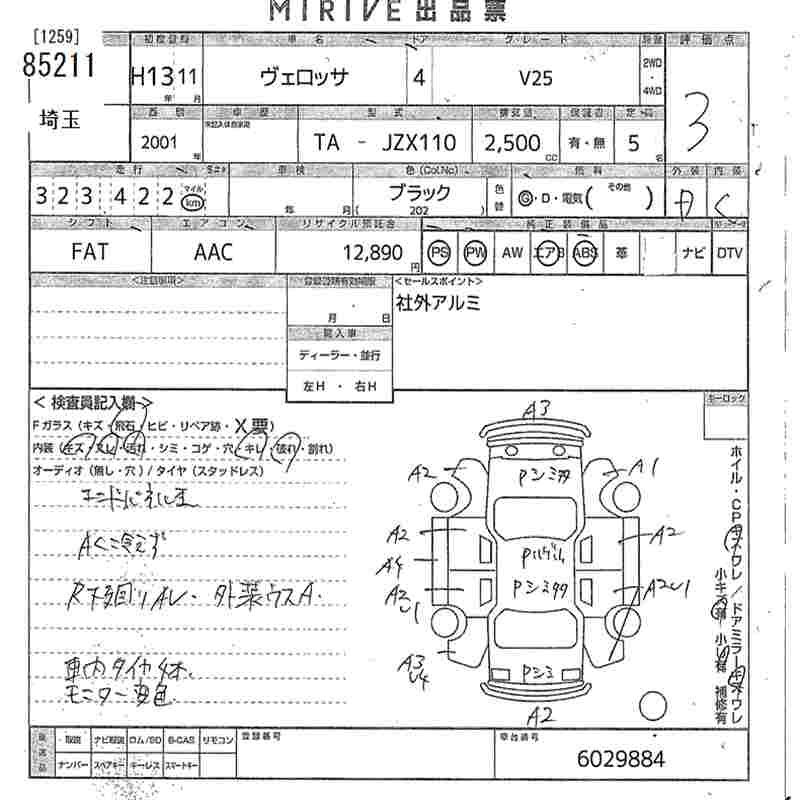 MIRIVE 出品票
[1259]
85211
埼玉
初度登録 車名 ドア グレード 評価点
H13 11 ヴェロッサ 4 V25 2WD・4WD 3
年 月
西暦 車歴 型式 排気量 定員
2001年 TA - JZX110 2,500 CC 有・無 5名
走行 車検 色(Col.No) 燃料 外装 内装
323,422 マイル km 年 月 ブラック (202) 色替 G・D・電気( その他 ) D C
シフト エアコン リサイクル預託金 純正装備品
FAT AAC 12,890円 PS PW AW エアB ABS 革 ナビ DTV
<注意事項> <セールスポイント>
月 日 社外アルミ
輸入車
ディーラー・並行
左H ・ 右H
< 検査員記入欄 > キーロック
Fガラス (キズ・飛石・ヒビ・リペア跡・X要)
内装 (キズ・スレ・汚れ・シミ・コゲ・穴・キレ・破れ・割れ)
オーディオ (無し・穴) / タイヤ (スタッドレス)
AC冷えず
R下廻りAし・外装ウスA.
車内タイヤ4本
モニター変色
A3
A2 Pシミ A1
A2 A2
A4
A2 U1 Pシミ A2U1
A3 U4 Pシミ
A2
ホイル・CPキズワレ / ドアミラーキズワレ
小キズ有 小U有 補修有
取説 ナビ取説 ロム/SD B-CAS リモコン 登録番号 車台番号
ナンバー スペアキー キーレス スマートキー 6029884